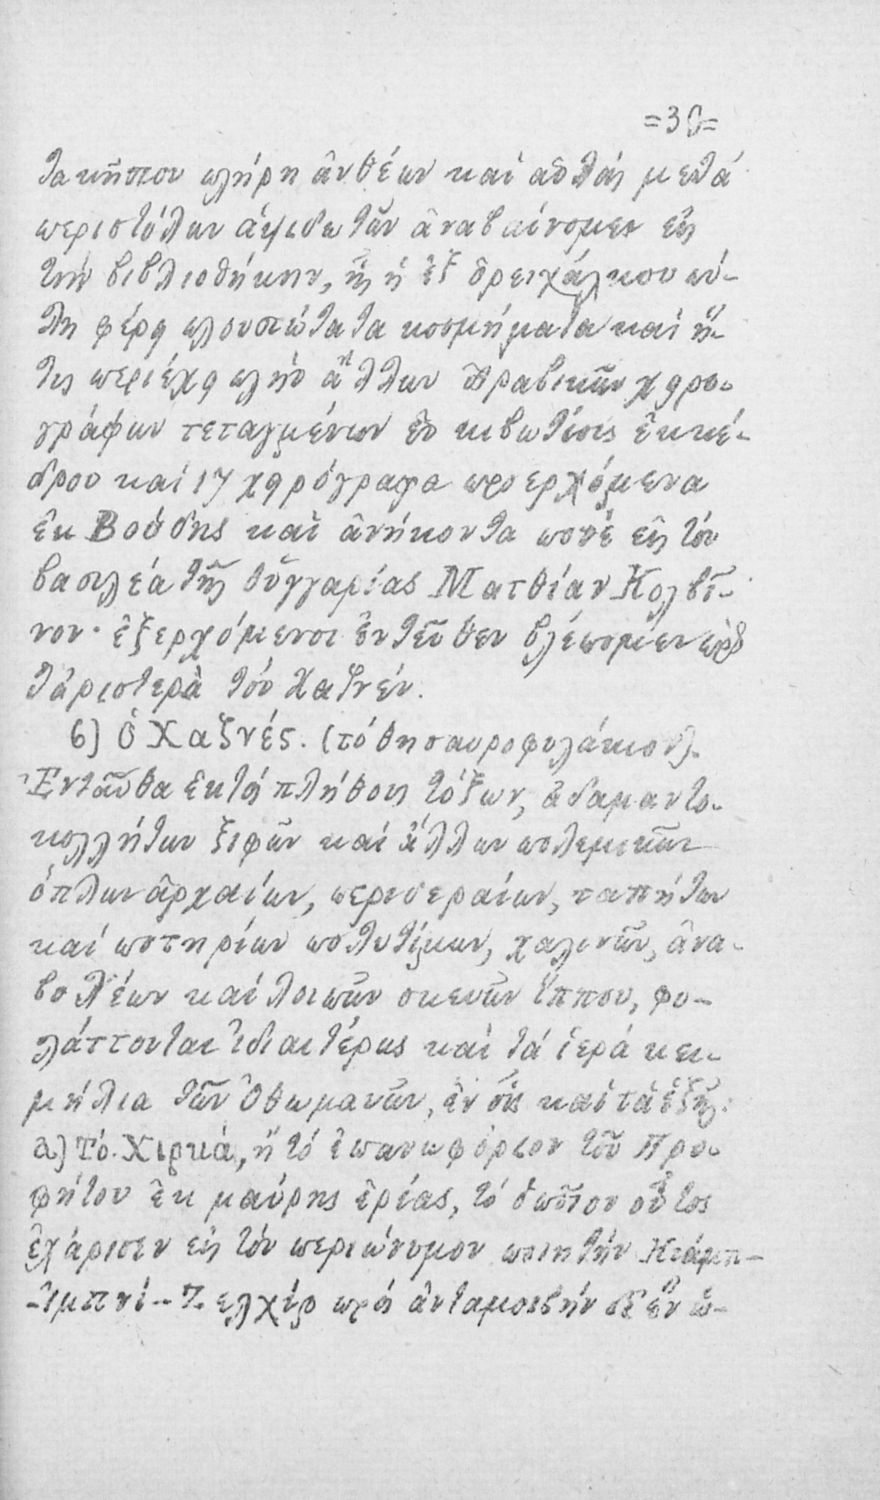 τα κῆπον πλήρη ἀνθέων καὶ αὐλὰς μετὰ
περιστύλων ἁψιδωτῶν ἀναβαίνομεν εἰς
τὴν βιβλιοθήκην, ἧς ἡ ἐξ ὀρειχάλκου πύ-
λη φέρει πλουσιώτατα κοσμήματα καὶ ἥ-
τις περιέχει πλὴν ἄλλων Ἀραβικῶν χειρο-
γράφων τεταγμένων ἐν κιβωτίοις ἐκ κέ-
δρου καὶ 17 χειρόγραφα προερχόμενα
ἐκ Βούδης καὶ ἀνήκοντα ποτὲ εἰς τὸν
βασιλέα τῆς Οὑγγαρίας Ματθίαν Κολβῖ-
νον· ἐξερχόμενοι ἐντεῦθεν βλέπομεν πρὸς
τἀριστερὰ τὸν Χαζνέν.
6) Ὁ Χαζνές. (τὸ θησαυροφυλάκιον).
Ἐνταῦθα ἐκτὸς πλήθους τόξων, ἀδαμαντο-
κολλήτων ξιφῶν καὶ ἄλλων πολεμικῶν
ὅπλων ἀρχαίων, περιδεραίων, ταπήτων
καὶ ποτηρίων πολυτίμων, χαλινῶν, ἀνα-
βολέων καὶ λοιπῶν σκευῶν ἵππου, φυ-
λάττονται ἰδιαιτέρως καὶ τὰ ἱερὰ κει-
μήλια τῶν Ὀθωμανῶν, ἐν οἷς καὶ τὰ ἑξῆς:
α) Τὸ Χιρκά, ἢ τὸ ἐπανωφόριον τοῦ Προ-
φήτου ἐκ μαύρης ἐρέας, τὸ ὁποῖον οὗτος
ἐχάρισεν εἰς τὸν περιώνυμον ποιητὴν Κιάμπ-
-ἰμπνί-- Ζελχὶρ πρὸς ἀνταμοιβὴν δι' ἓν ὡ-